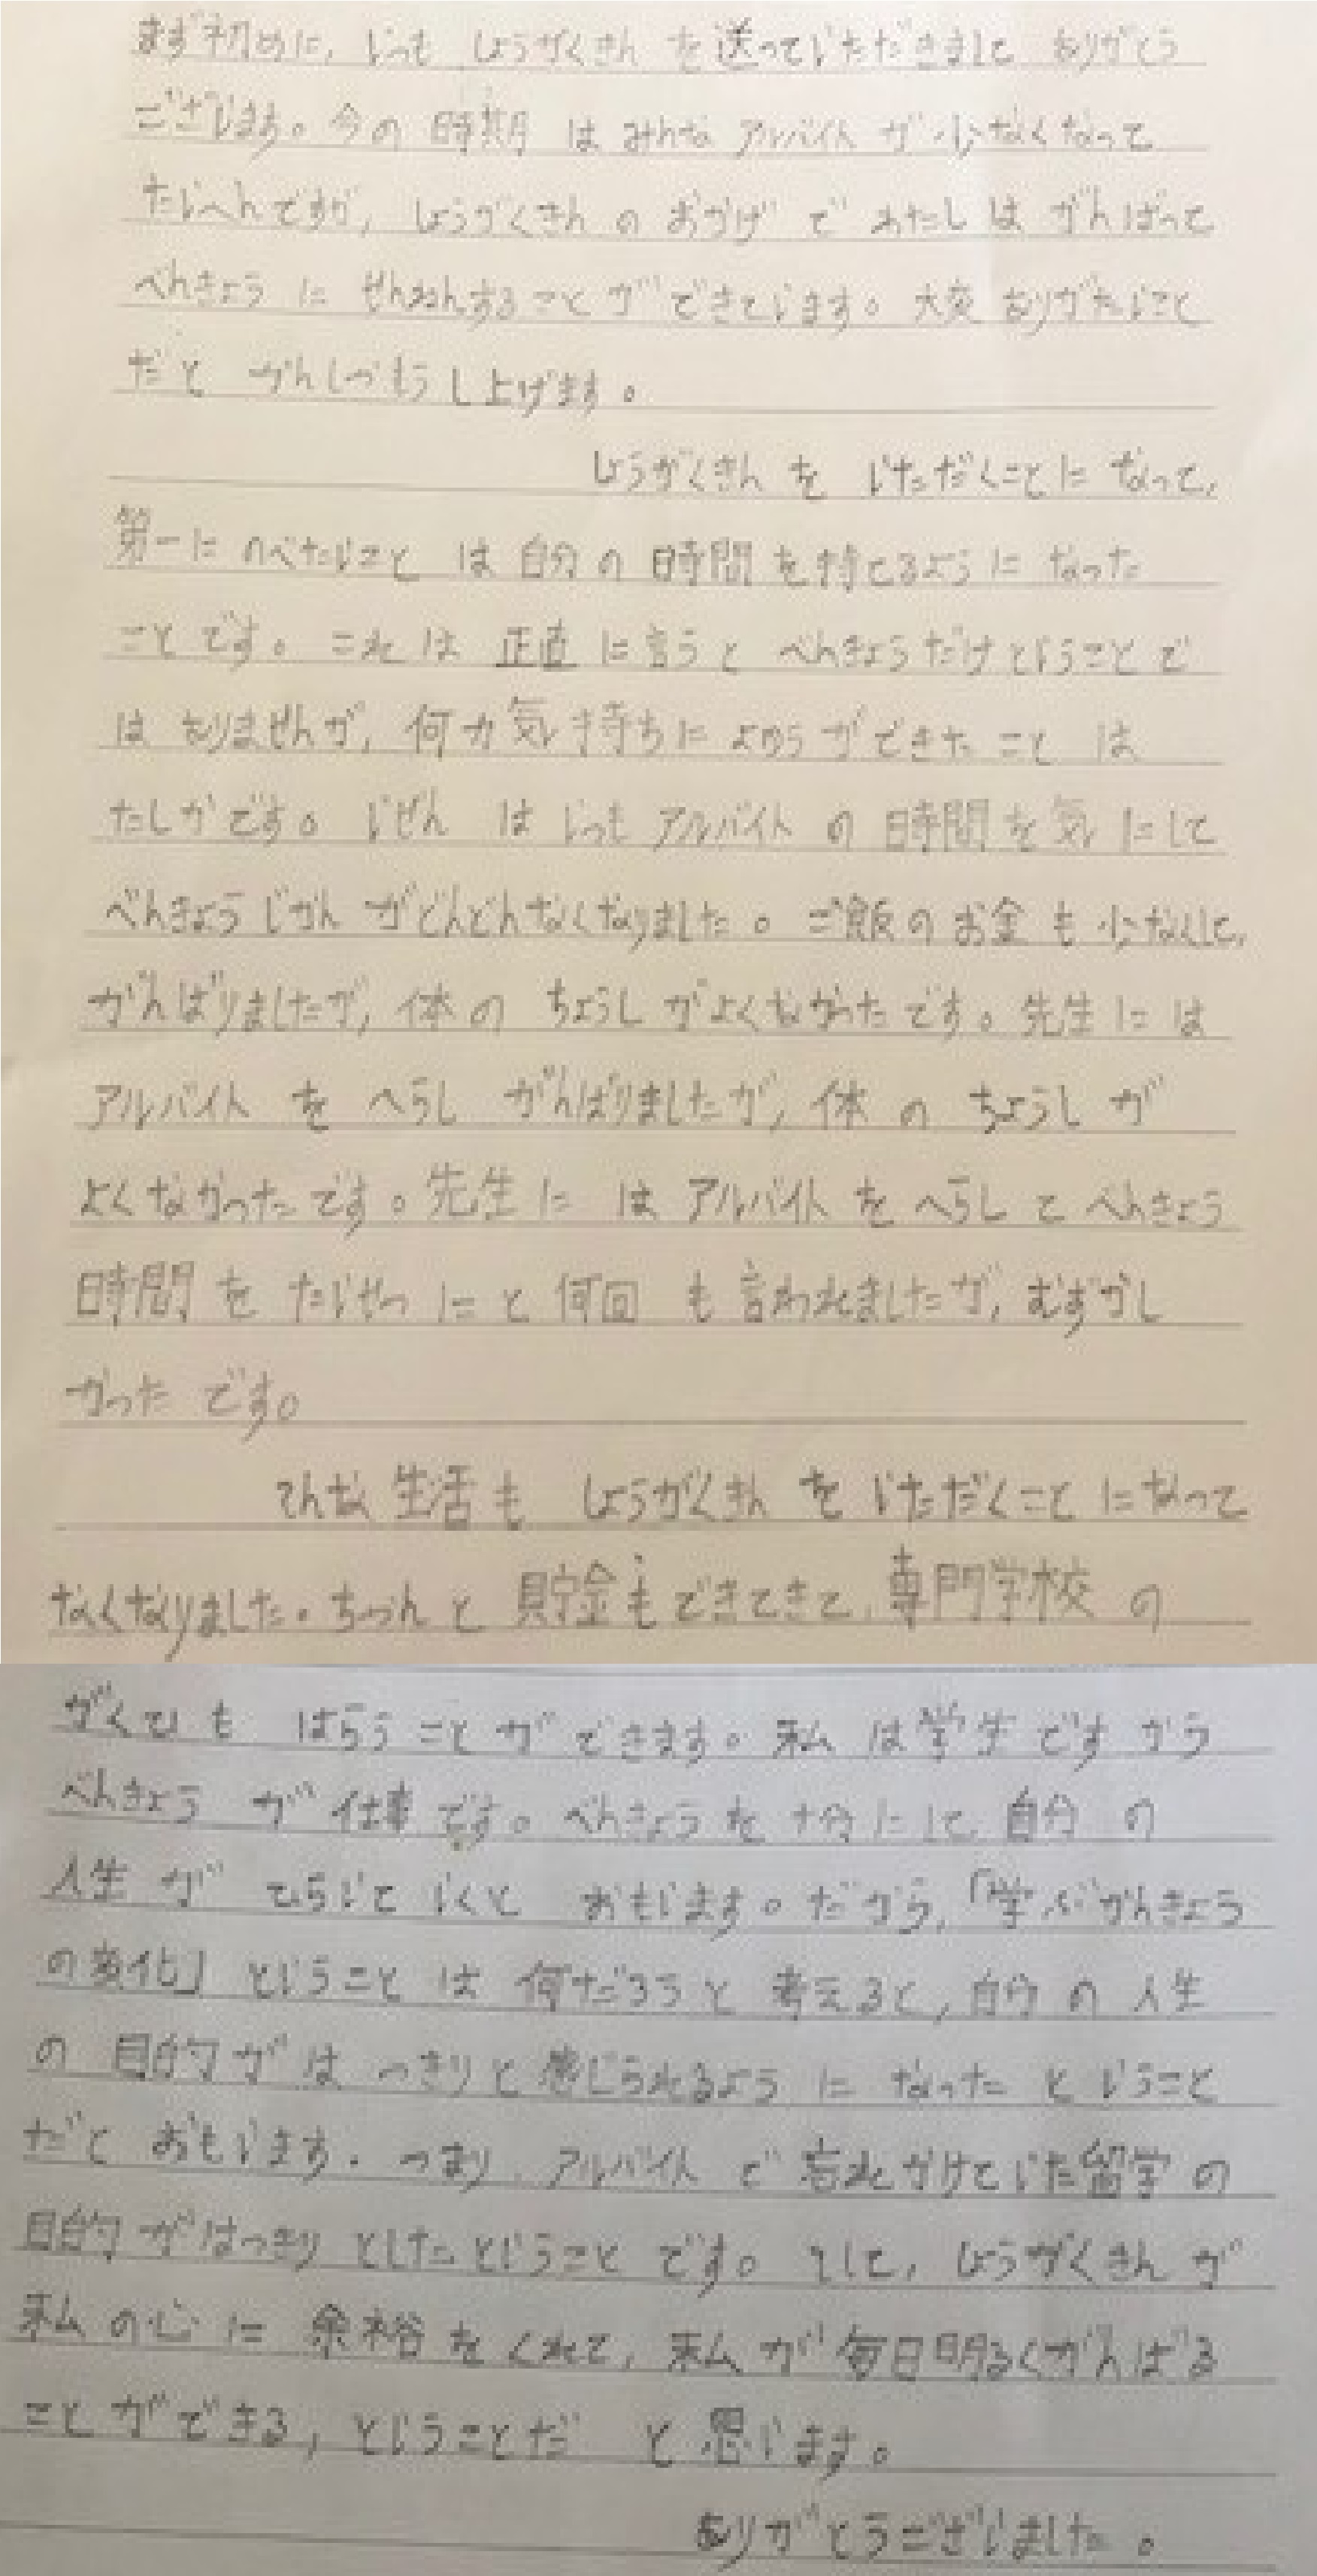 まず初めに、いつも しょうがくきん を送っていただきまして ありがとう
ございます。今の 時期 は みんな アルバイト が 少なくなって
たいへんですが、しょうがくきん の おかげ で わたし は がんばって
べんきょう に せんねんすること が できています。大変 ありがたいこと
だと かんしゃもうし上げます。
しょうがくきん を いただくこと に なって、
第一に のべたいこと は 自分 の 時間 を 持てるように なった
こと です。これ は 正直 に 言う と べんきょうだけ ということ で
は ありませんが、何か 気持ちに よゆう が できた こと は
たしか です。いぜん は いつも アルバイト の 時間 を 気 にして
べんきょう じかん が どんどん なくなりました。ご飯 の お金 も 少なくして、
がんばりましたが、体 の ちょうし が よくなかった です。先生 に は
アルバイト を へらし がんばりましたが、体 の ちょうし が
よくなかった です。先生 に は アルバイト を へらし て べんきょう
時間 を たいせつ に と 何回 も 言われましたが、むずかし
かった です。
そんな 生活 も しょうがくきん を いただくこと に なって
なくなりました。ちゃんと 貯金も できてきて、専門学校 の
がくひ も はらう こと が できます。私 は 学生 です から
べんきょう が 仕事 です。べんきょう を 十分 に して 自分 の
人生 が ひらいて いくと おもいます。だから、「学ぶ かんきょう
の 変化」 ということ は 何だろう と 考えると、自分 の 人生
の 目的 が はっきり と 感じられるよう に なった ということ
だと おもいます。つまり、アルバイト で 忘れかけていた 留学 の
目的 が はっきり としたということ です。そして、しょうがくきん が
私 の 心 に 余裕 を くれて、私 が 毎日明るく がんばる
こと が できる、ということだ と 思います。
ありがとうございました。